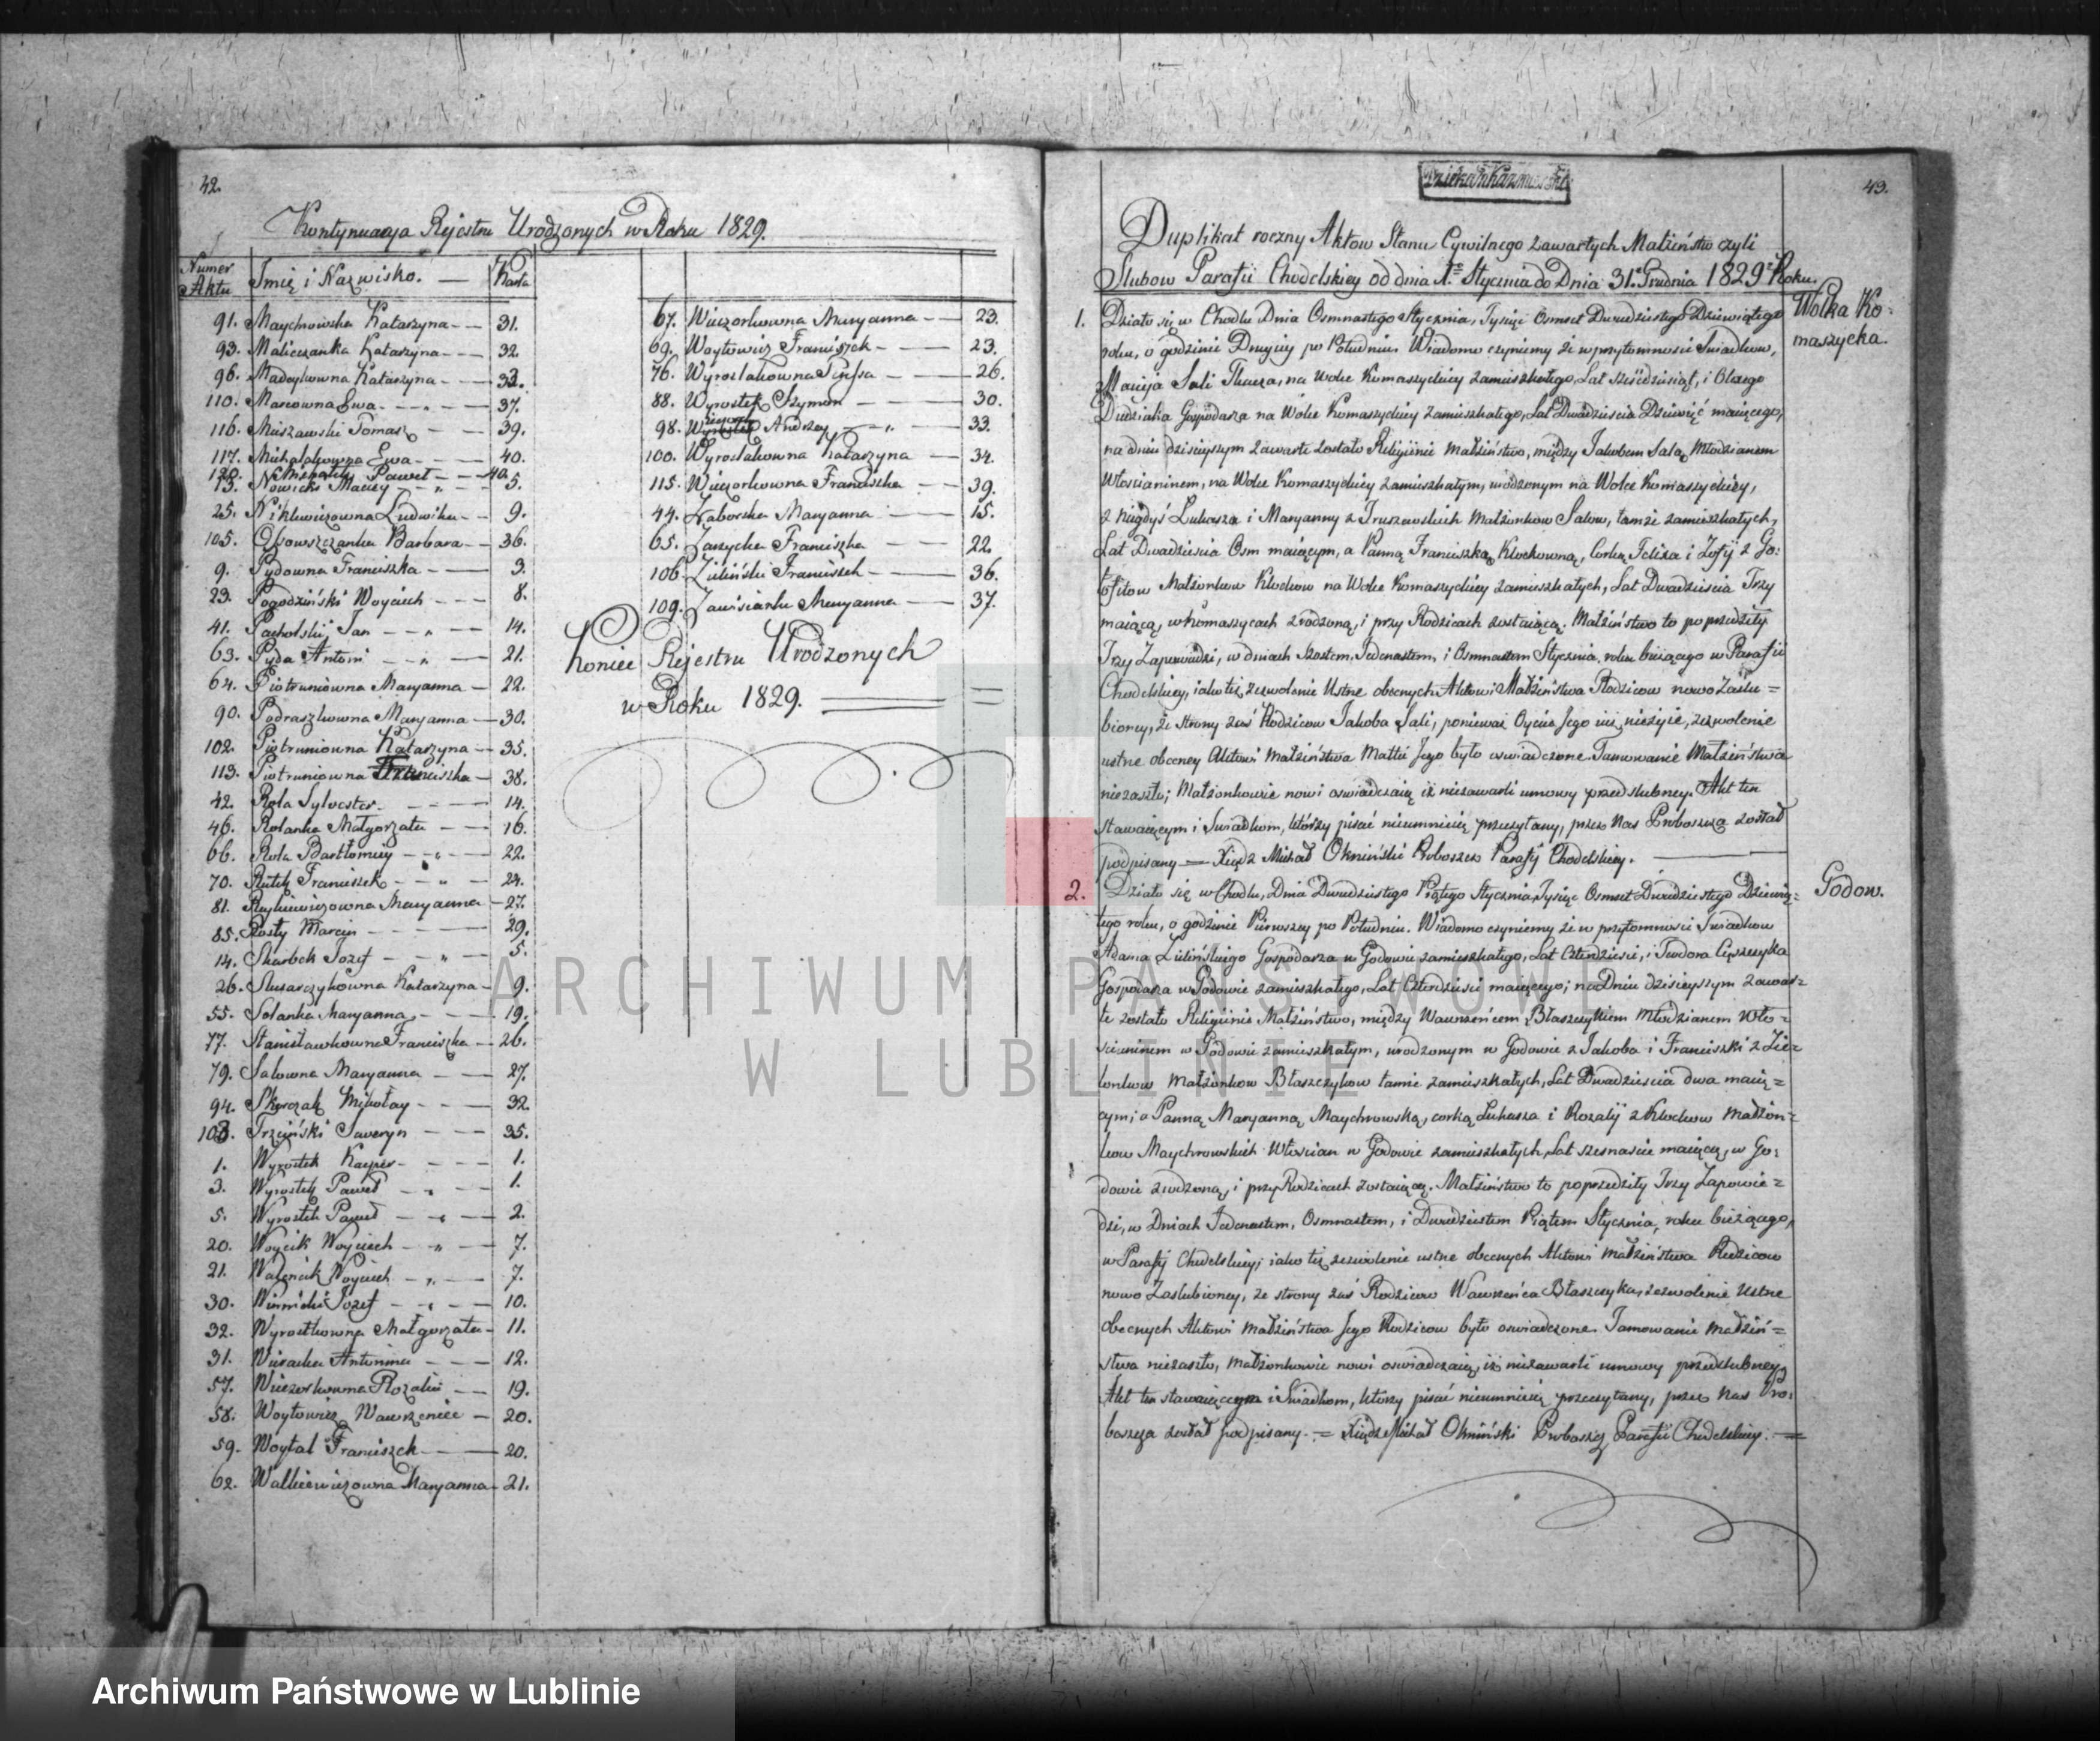 42.
Kontynuacya Rejestru Urodzonych w Roku 1829.
Numer Aktu Imię i Nazwisko. Karta
91. Maychrowska Katarzyna 31.
93. Maliczanka Katarzyna 32.
96. Katarzyna 33.
110. Ewa 37.
116. Muszawski Tomasz 39.
117. Michalakowna Ewa 40.
120. Paweł 40.
13. Nowicki Maciey 5.
25. Ludwika 9.
105. Barbara 36.
9. Pydowna Franciszka 3.
23. Pogodziński Woyciech 8.
41. Pacholski Jan 14.
63. Pyda Antoni 21.
64. Piotruniowna Maryanna 22.
90. Podraszkowna Maryanna 30.
102. Piotruniowna Katarzyna 35.
113. Piotruniowna 38.
42. Rola Sylvester 14.
46. Rolanka Małgorzata 16.
66. Rola Bartłomiey 22.
70. Rutek Franciszek 24.
81. Maryanna 27.
85. Rosły Marcin 29.
14. Skarbek Jozef 5.
26. Slusarczykowna Katarzyna 9.
55. Solanka Maryanna 19.
77. Stanisławkowna Franciszka 26.
79. Salowna Maryanna 27.
94. Skorczak Mikołay 32.
103. Trzciński Saweryn 35.
1. Wyrostek Kacper 1.
3. Wyrostek Paweł 1.
5. Wyrostek Paweł 2.
20. Woycik Woyciech 7.
21. Woyciech 7.
30. Jozef 10.
32. Wyrostkowna Małgorzata 11.
31. Antonina 12.
57. Wieczorkowna Rozalia 19.
58. Woytowicz Wawrzeniec 20.
59. Woytal Franciszek 20.
62. Walkiewiczowna Maryanna 21.
67. Wieczorkowna Maryanna 23.
69. Woytowicz Franciszek 23.
76. 26.
88. Wyrostek Szymon 30.
98. Andrzey 33.
100. Katarzyna 34.
115. Wieczorkowna Franciszka 39.
44. Zaborska Maryanna 15.
65. Franciszka 22.
106. Zieliński Franciszek 36.
109. Maryanna 37.
Koniec Rejestru Urodzonych
w Roku 1829.
49.
Duplikat roczny Aktow Stanu Cywilnego zawartych Małżeństw czyli
Slubow Parafii Chodelskiey od dnia 1go Stycznia do Dnia 31. Grudnia 1829 Roku.
Wolka Ko-
maszycka.
1. Działo się w Chodlu Dnia Osmnastego Stycznia, Tysiąc Osmset Dwudziestego Dziewiątego
roku, o godzinie Drugiey po Południu. Wiadomo czyniemy że w przytomności Swiadkow,
Macieja Sali Tkacza, na Wolce Komaszyckiey zamieszkałego, Lat sześdziesiąt, i Błażego
Dudziaka Gospodarza na Wolce Komaszyckiey zamieszkałego, Lat Dwadzieścia Dziewięć maiącego,
na dniu dzisieyszym zawarte zostało Religijnie małżeństwo, między Jakobem Salą, Młodzianem
Włościaninem, na Wolce Komaszyckiey zamieszkałym, urodzonym na Wolce Komaszyckiey,
z niegdyś Łukasza i Maryanny z Truszewskich Małżonkow Salow, tamże zamieszkałych,
Lat Dwadzieścia Osm maiącym, a Panną Franciszką Kłochowną, Corką Felixa i Zofij z Go-
małżonkow Kłochow na Wolce Komaszyckiey zamieszkałych, Lat Dwadzieścia Trzy
maiącą, w Komaszycach zrodzoną, i przy Rodzicach zostaiącą. Małżeństwo to poprzedziły
Trzy Zapowiedzi, w dniach Szostem, Jedenastem, i Osmnastem Stycznia, roku bieżącego w Parafii
Chodelskiey, iako też, zezwolenie ustne obecnych Aktowi Małżeństwa Rodzicow nowo Zaślu=
bioney, ze strony zaś Rodzicow Jakoba Sali, ponieważ Oyciec Jego iuż nieżyie, zezwolenie
ustne obecney Aktowi małżeństwa Matki Jego było oswiadczone. Tamowanie Małżeństwa
niezaszło; Małżonkowie nowi oswiadczaią iż niezawarli umowy przedslubney. Akt ten
Stawaiącym i Swiadkom, ktorzy pisać nieumnieią przeczytany, przez Nas Proboszcza został
podpisany — Xiądz Michał Okniński Proboszcz Parafij Chodelskiey.
Godow.
2. Działo się w Chodlu, Dnia Dwudziestego Piątego Stycznia, Tysiąc Osmset Dwudziestego Dziewią=
tego roku, o godzinie Pierwszey po Południu. Wiadomo czyniemy że w przytomności Swiadkow
Adama Zielińskiego Gospodarza w Godowie zamieszkałego, Lat Czterdzieści, i Teodora
Gospodarza w Godowie zamieszkałego, Lat Czterdzieści maiącego; na Dniu dzisieyszym zawar=
te zostało Religijnie Małżeństwo, między Wawrzeńcem Błaszczykiem Młodzianem Wło=
ścianinem w Godowie zamieszkałym, urodzonym w Godowie z Jakoba i Franciszki z Zie=
lonkow Małżonkow Błaszczykow tamże zamieszkałych, Lat Dwadzieścia dwa maią=
cym; a Panną Maryanną Maychrowską, corką Łukasza i Rozalij z Kłochow małżon=
kow Maychrowskich Włościan w Godowie zamieszkałych, Lat szesnaście maiącą, w Go-
dowie zrodzoną, i przy Rodzicach zostaiącą. Małżeństwo to poprzedziły Trzy Zapowie=
dzi, w Dniach Jedenastem, Osmnastem, i Dwudziestem Piątem Stycznia, roku bieżącego,
w Parafij Chodelskiey; iako też zezwolenie ustne obecnych Aktowi małżeństwa Rodzicow
nowo Zaslubioney, ze strony zaś Rodzicow Wawrzeńca Błaszczyka, zezwolenie ustne
obecnych Aktowi małżeństwa Jego Rodzicow było oswiadczone. Tamowanie małżeń=
stwa niezaszło, małżonkowie nowi oswiadczaią, iż niezawarli umowy przedslubney,
Akt ten stawaiącym i Swiadkom, ktorzy pisać nieumnieią przeczytany, przez Nas Pro-
boszcza został podpisany. = Xiądz Michał Okniński Proboszcz Parafii Chodelskiey. =
ARCHIWUM PAŃSTWOWE
W LUBLINIE
Archiwum Państwowe w Lublinie